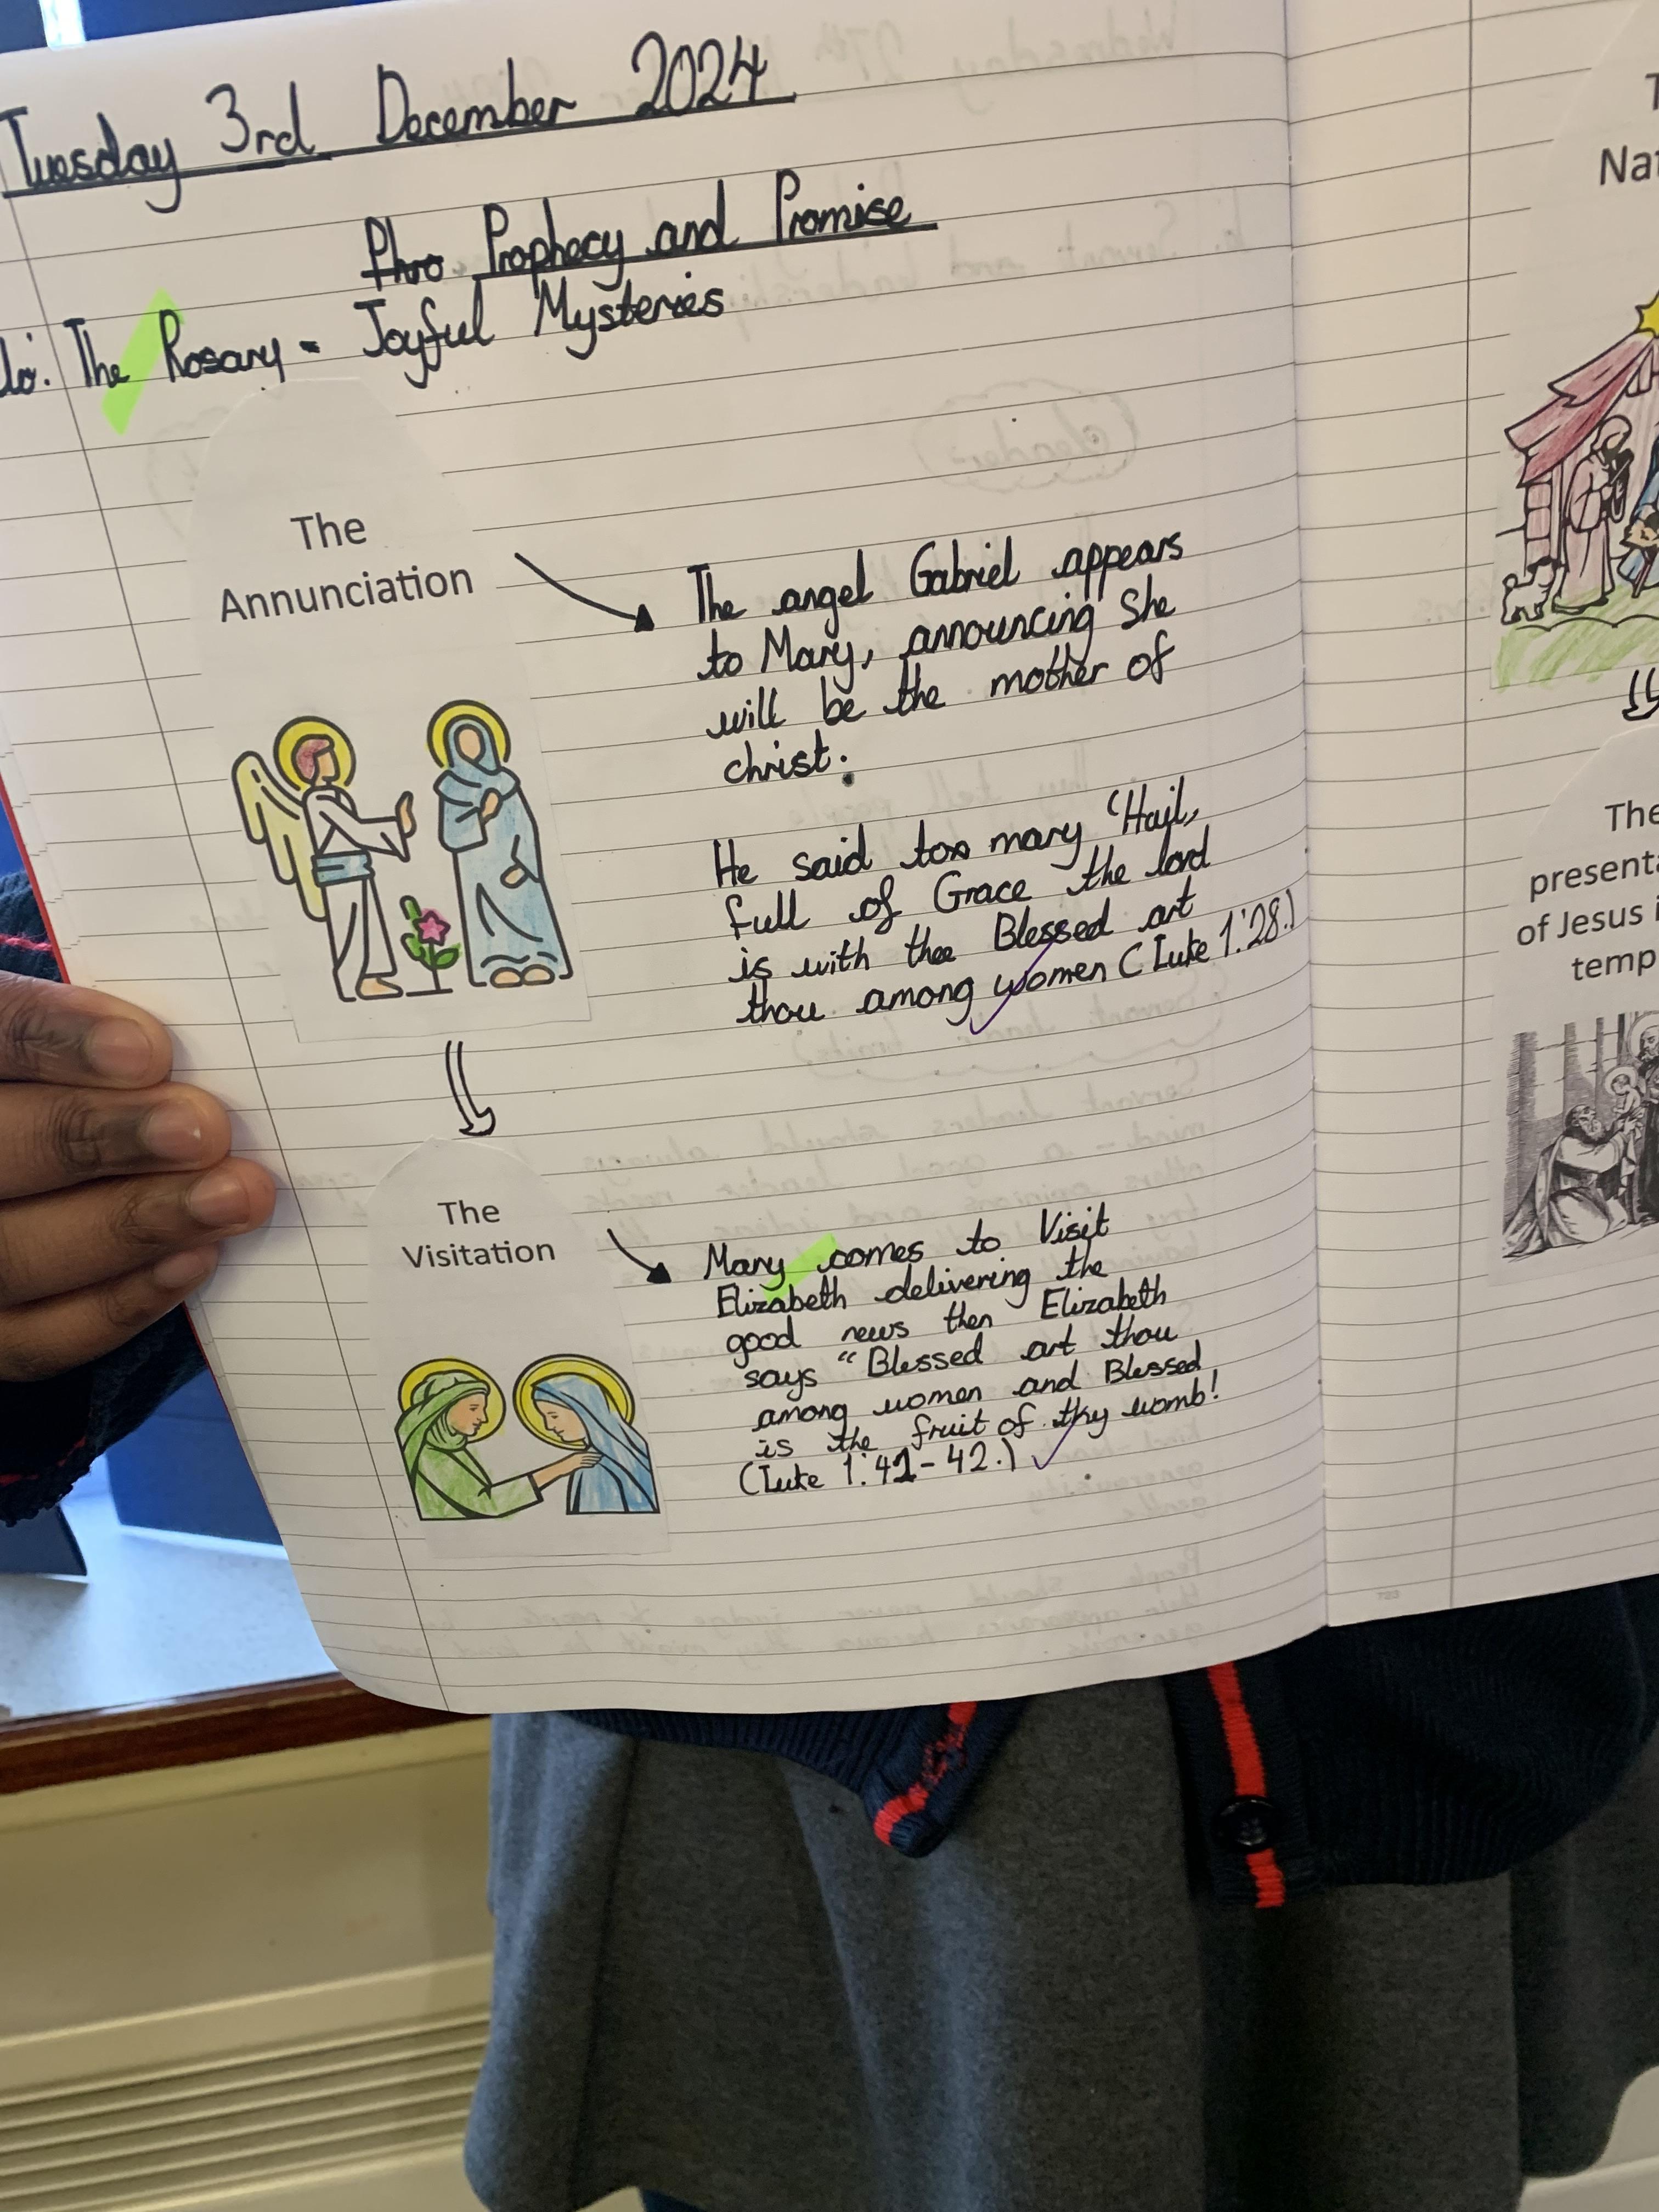 Tuesday 3rd December 2024
Phro Prophecy and Promise
Lo: The Rosary - Joyful Mysteries
The
Annunciation
The angel Gabriel appears
to Mary, announcing She
will be the mother of
christ.
He said too mary 'Hail,
full of Grace the lord
is with thee Blessed art
thou among women (Luke 1:28.)
The
Visitation
Mary comes to Visit
Elizabeth delivering the
good news then Elizabeth
says "Blessed art thou
among women and Blessed
is the fruit of thy womb!
(Luke 1:41-42.)
The
of Jesus